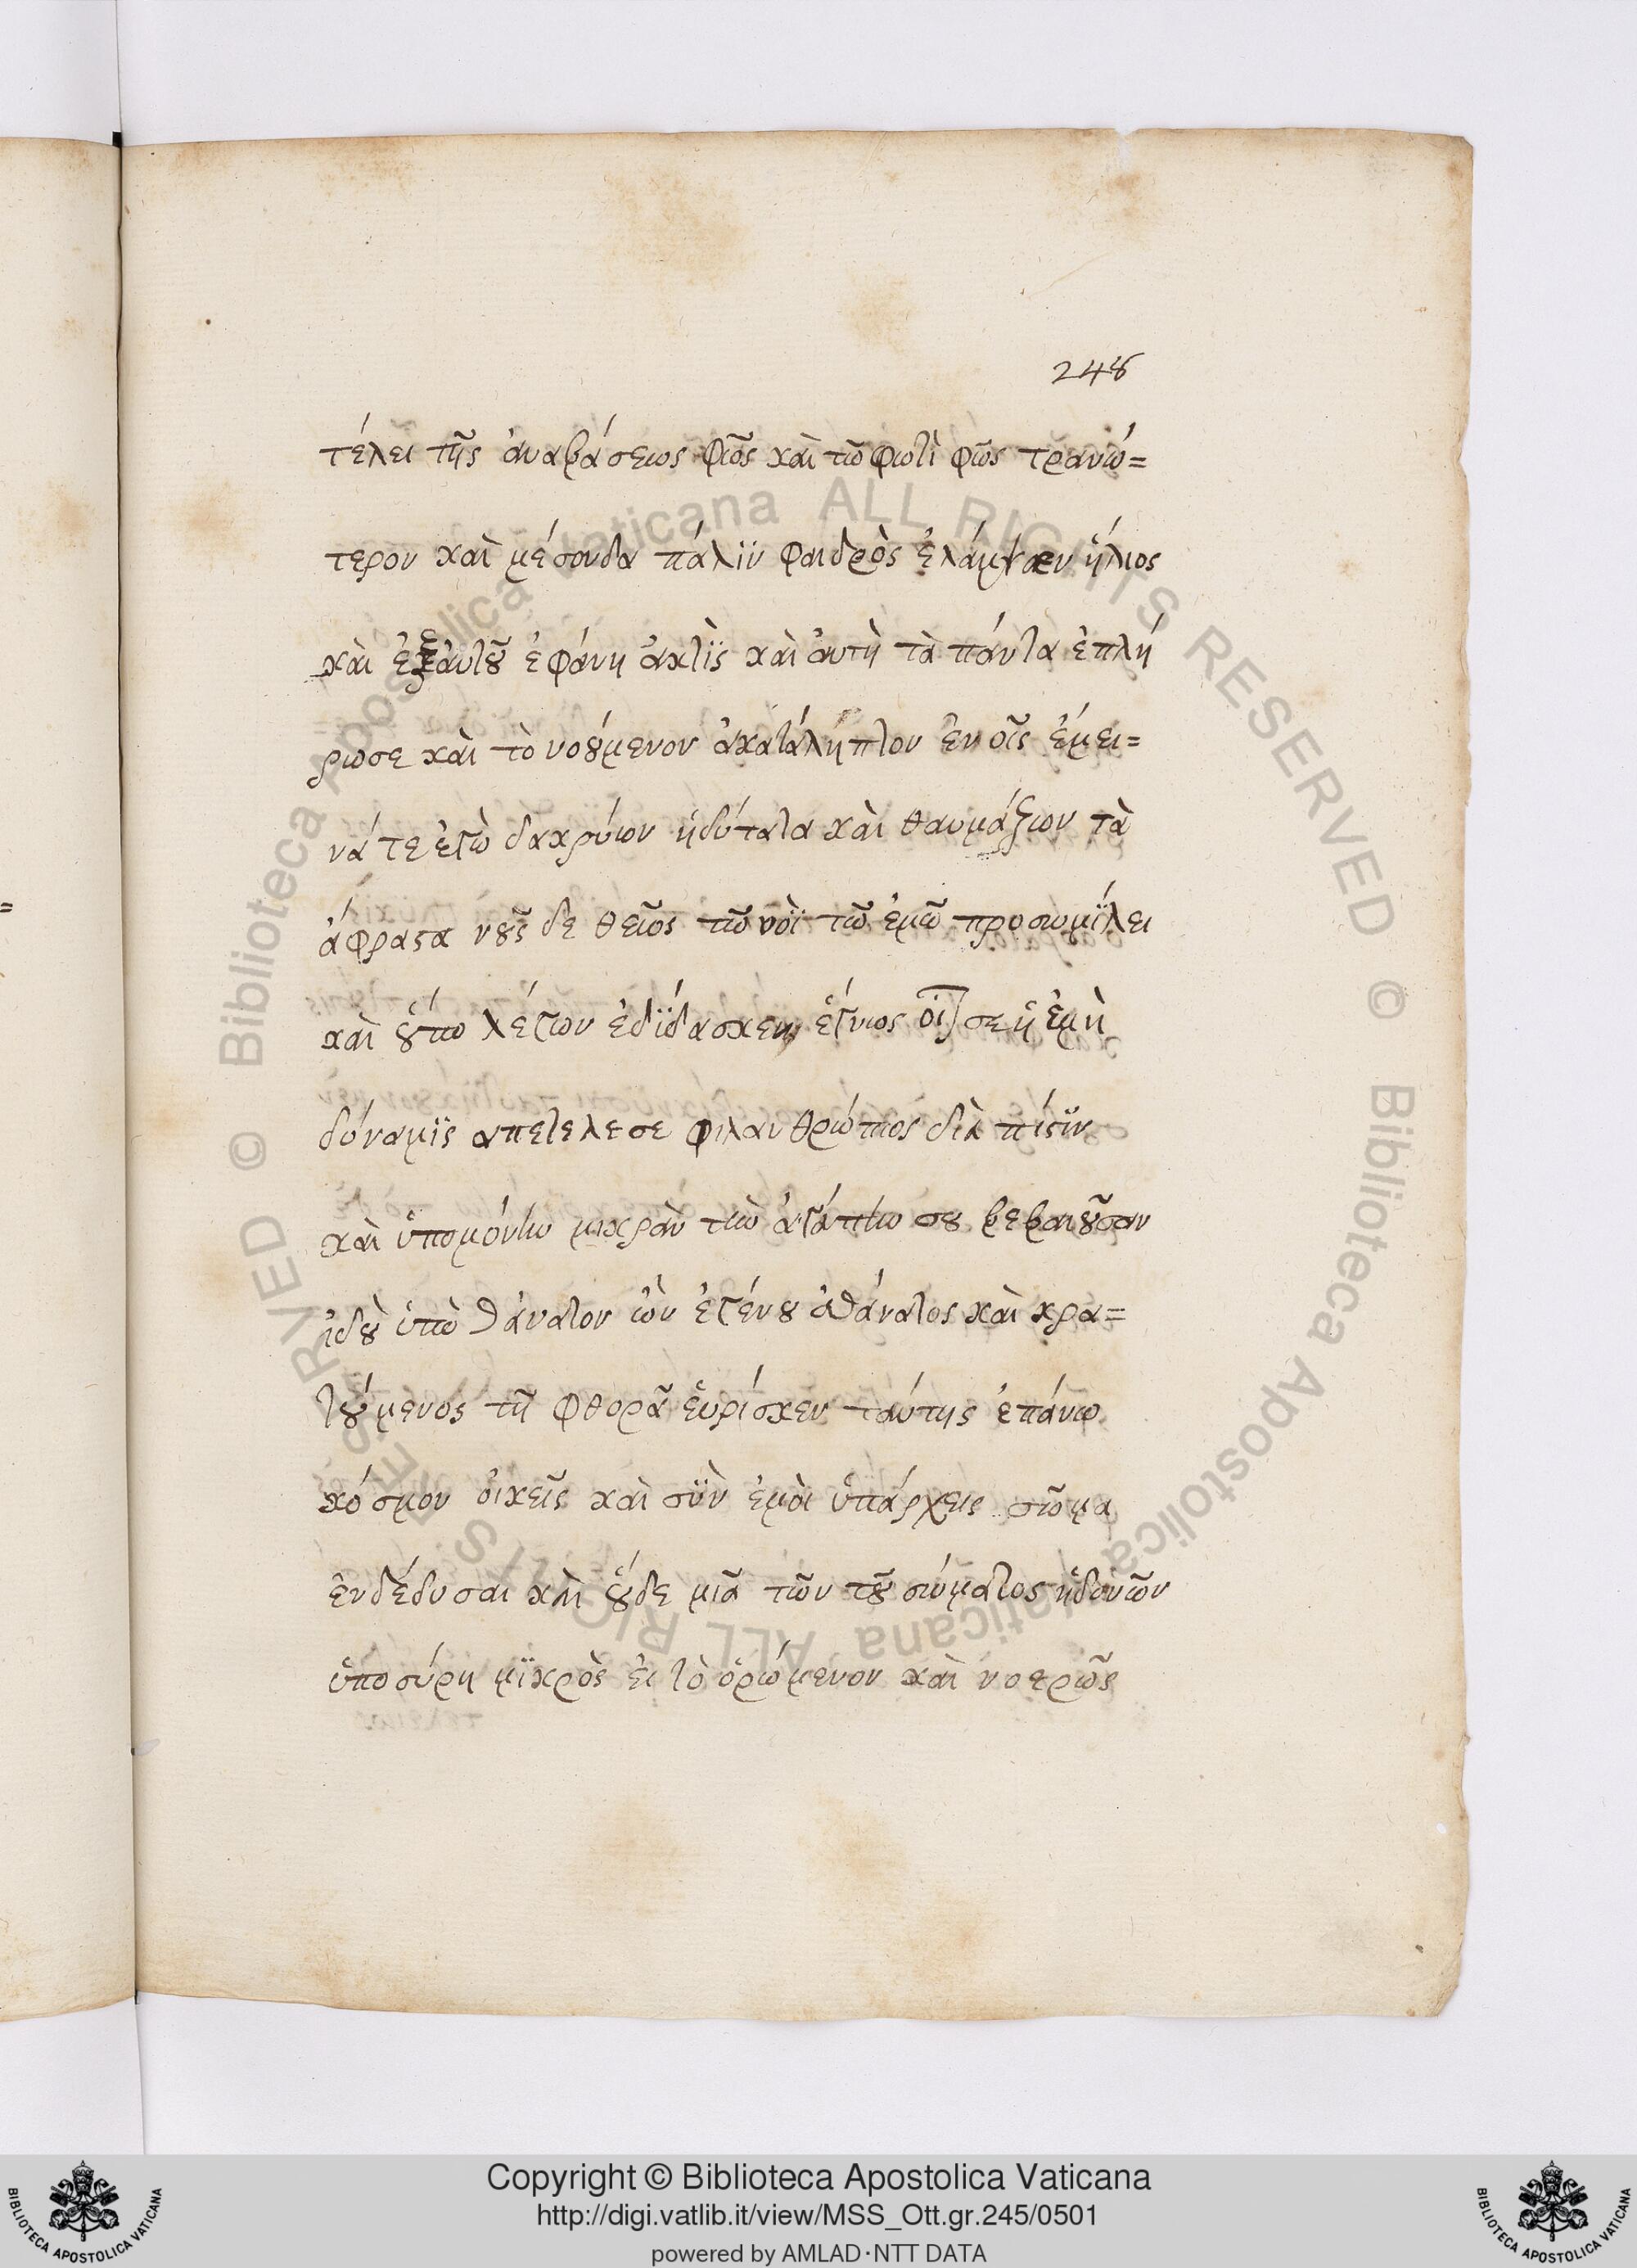 248
τέλει τῆς ἀναβάσεως φῶς καὶ τῶ φωτὶ φῶς τρανώ=
τερον καὶ μέσονδα πάλϊν φαιδρὸς ἐλάμψαεν ἥλιος
καὶ ἐξαὐτοῦ ἐφάνη ἀκτὶς καὶ ἀυτὴ τὰ πάντα ἐπλή
ρωσε καὶ τὸ νοούμενον ἀκατάληπτον ἐν οἷς ἐμει=
νά τε ἐγὼ δακρύων ἡδύτατα καὶ θαυμάζων τὰ
ἄφραστα νοῦς δε θεῖος τῶ νοῒ τῶ ἐμῶ προσωμίλει
καὶ οὕπω λέγων ἐδΐδασκεν ἔγνως σε ἡ ἐμὴ
δύναμϊς απετελεσε φιλανθρώπως διὰ πίστϊν
καὶ ὑπομόνὴν μικρὰν τὴν ἀγάπην σου βεβαιοῦσαν
ἰδοὺ ὑπὸ θάνατον ὢν ἐγένου ἀθάνατος καὶ κρα=
τούμενος τῆ φθορᾶ ἑυρίσκεν ταύτης ἐπάνω
κόσμον ὀικεῖς καὶ σὺν ἐμὸι ὑπάρχεις σῶμα
ἐνδέδυσαι καὶ οὔδε μιᾶ τῶν τοῦ σώματος ἡδονῶν
ὑποσύρη μϊκρὸς ἐι τὸ ὁρώμενον καὶ νοερῶς
Copyright © Biblioteca Apostolica Vaticana
http://digi.vatlib.it/view/MSS_Ott.gr.245/0501
powered by AMLAD·NTT DATA
BIBLIOTECA APOSTOLICA VATICANA
BIBLIOTECA APOSTOLICA VATICANA
© Biblioteca Apostolica Vaticana ALL RIGHTS RESERVED
© Biblioteca Apostolica Vaticana ALL RIGHTS RESERVED